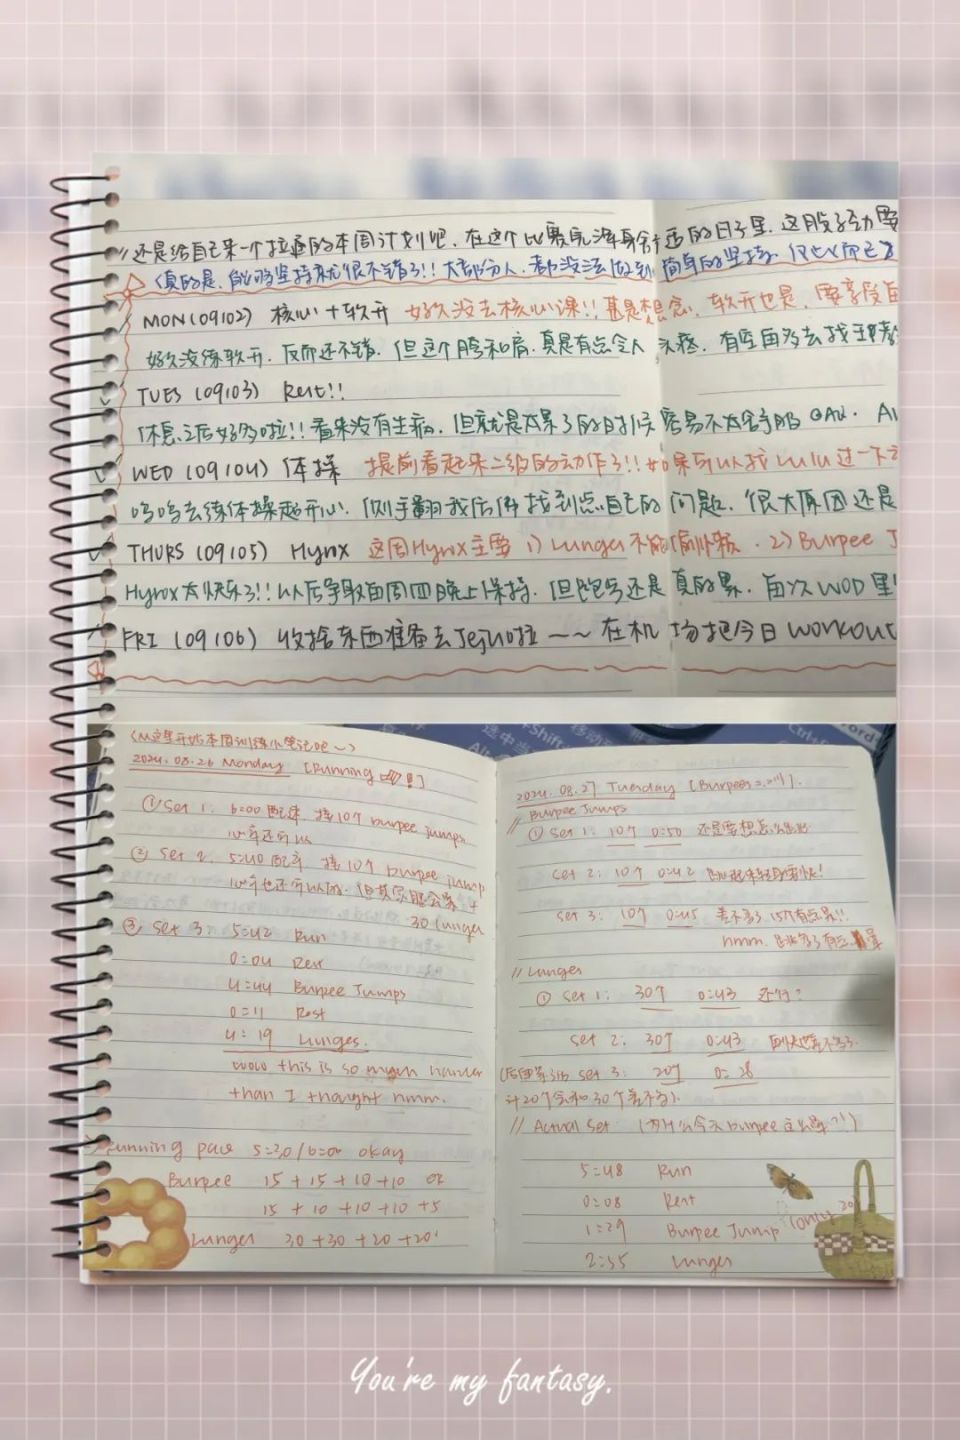 // 还是给自己来一个拉通的本周计划吧. 在这个 的日子里. 这股子劲
(真的是. 能够坚持就很不错了!! 大部分人. 都没法做到 简单的坚持. 仅此而已
MON (09/02) 核心 + 软开 好久没去核心课!! 甚是想念. 软开也是.
好久没练软开. 反而还不错. 但这个胯和肩. 真是有点令人 头疼. 有空再多去找
TUES (09/03) Rest!!
休息之后好多啦!! 看来没有生病. 但就是太累了的时候 容易不太舒服 QAQ.
WED (09/04) 体操 提前看起来二级的动作了!! 如果可以找 Lulu 过一下
呜呜去练体操超开心. 侧手翻 找到点自己的 问题. 很大原因 还是
THURS (09/05) Hyrox 这周Hyrox主要 1) Lunges 不能 . 2) Burpee J
Hyrox 太快乐了!! 以后争取每周四晚上保持. 但 还是 真的累. 每次 WOD 里
FRI (09/06) 收拾东西准备去Jeju啦 ~~ 在机 场把今日 workout
(从这里开始本周训练小笔记吧~)
2024.08.26 Monday [Running !]
① Set 1: 6:00 配速 接10个 burpee jumps
心率还可以
② Set 2: 5:40 配速 接10个 burpee jump
心率也还可以 但其实
30 lunges
③ Set 3: 5:42 Run
0:04 Rest
4:44 Burpee Jumps
0:11 Rest
4:19 Lunges.
wow this is so much harder
than I thought hmm.
Running pace 5:30 / 6:00 okay
Burpee 15 + 15 + 10 + 10 or
15 + 10 + 10 + 10 + 5
Lunges 30 + 30 + 20 + 20
2024.08.27 Tuesday [Burpees ].
// Burpee Jumps
① Set 1: 10个 0:50 还是要想怎么
Set 2: 10个 0:42
Set 3: 10个 0:45 差不多了 15个有点累!!
hmm.
// Lunges
① Set 1: 30个 0:43 还行?
Set 2: 30个 0:43 差不多了
Set 3: 20个 0:28
计20个会和30个差不多).
// Actual Set: (为什么今天burpee这么 ?!)
5:48 Run
0:08 Rest
1:29 Burpee Jump (only 20
2:55 Lunges
You're my fantasy.